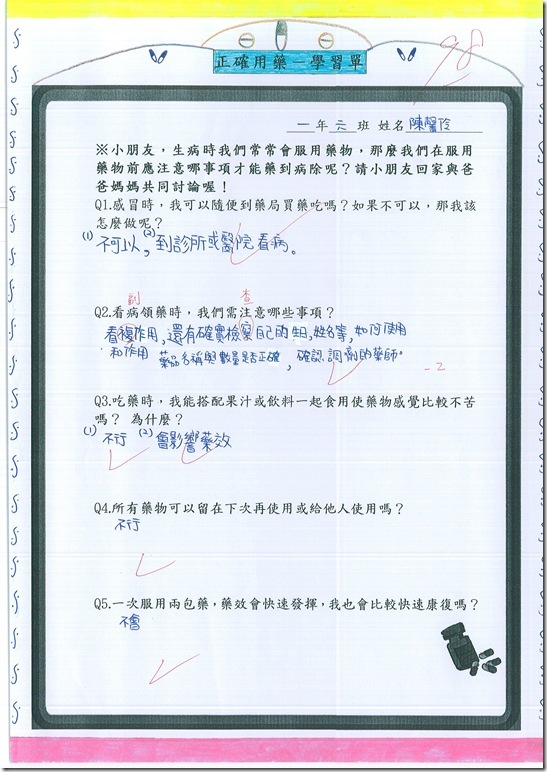 正確用藥－學習單
98
一年六班 姓名陳馨伶
※小朋友，生病時我們常常會服用藥物，那麼我們在服用
藥物前應注意哪事項才能藥到病除呢？請小朋友回家與爸
爸媽媽共同討論喔！
Q1.感冒時，我可以隨便到藥局買藥吃嗎？如果不可以，那我該
怎麼做呢？
(1)不可以，(2)到診所或醫院看病。
副 查
Q2.看病領藥時，我們需注意哪些事項？
看複作用，還有確實檢察自己的生日，姓名等，如何使用
和作用 藥品名稱與數量是否正確，確認調劑的藥師。
-2
Q3.吃藥時，我能搭配果汁或飲料一起食用使藥物感覺比較不苦
嗎？ 為什麼？
(1)不行 (2)會影響藥效
Q4.所有藥物可以留在下次再使用或給他人使用嗎？
不行
Q5.一次服用兩包藥，藥效會快速發揮，我也會比較快速康復嗎？
不會